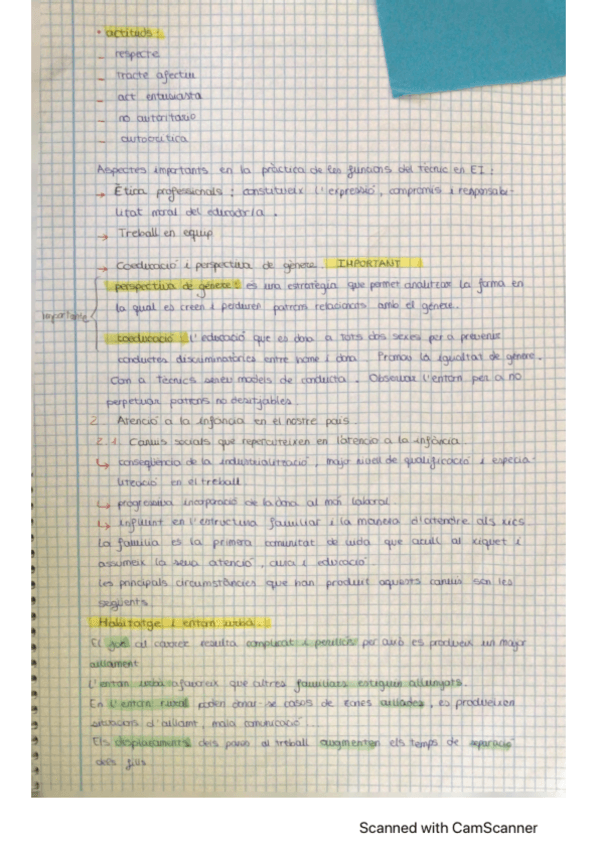 • actituds :
– respecte
– tracte afectiu
– act entusiasta
– no autoritario
– autocritica
Aspectes importants en la pràctica de les funcions del tècnic en EI :
→ Ètica professionals : constitueix l'expressió, compromis i responsabi-
litat moral del educador/a .
→ Treball en equip
→ Coeducació i perspectiva de gènere. IMPORTANT !
perspectiva de gènere : és una estratègia que permet analitzar la forma en
la qual es creen i perduren patrons relacionats amb el gènere.
importante
coeducació : l'educació que es dona a tots dos sexes per a prevenir
conductes discriminatòries entre home i dona. Promou la igualtat de gènere.
Com a Tècnics sereu models de conducta . Observar l'entorn per a no
perpetuar patrons no desitjables.
2. Atenció a la infància en el nostre país.
2.1. Canvis socials que repercuteixen en l'atenció a la infància.
↳ conseqüència de la industrialització, major nivell de qualificació i especia-
lització en el treball
↳ progressiva incorporació de la dona al món laboral.
↳ influint en l'estructura familiar i la manera d'atendre als xics.
La família es la primera comunitat de vida que acull al xiquet i
assumeix la seua atenció, cura i educació.
Les principals circumstàncies que han produit aquests canvis son les
següents.
Habitatge i entorn urbà.
El joal al carrer resulta complicat i perillós per això es produeix un major
aillament
L'entorn urbà afavoreix que altres familiars estiguin allunyats.
En l'entorn rural poden donar-se casos de zones aïllades, es produeixen
situacions d'aïllament, mala comunicació.
Els desplaçaments dels pares al treball augmenten els temps de separació
dels fills
Scanned with CamScanner